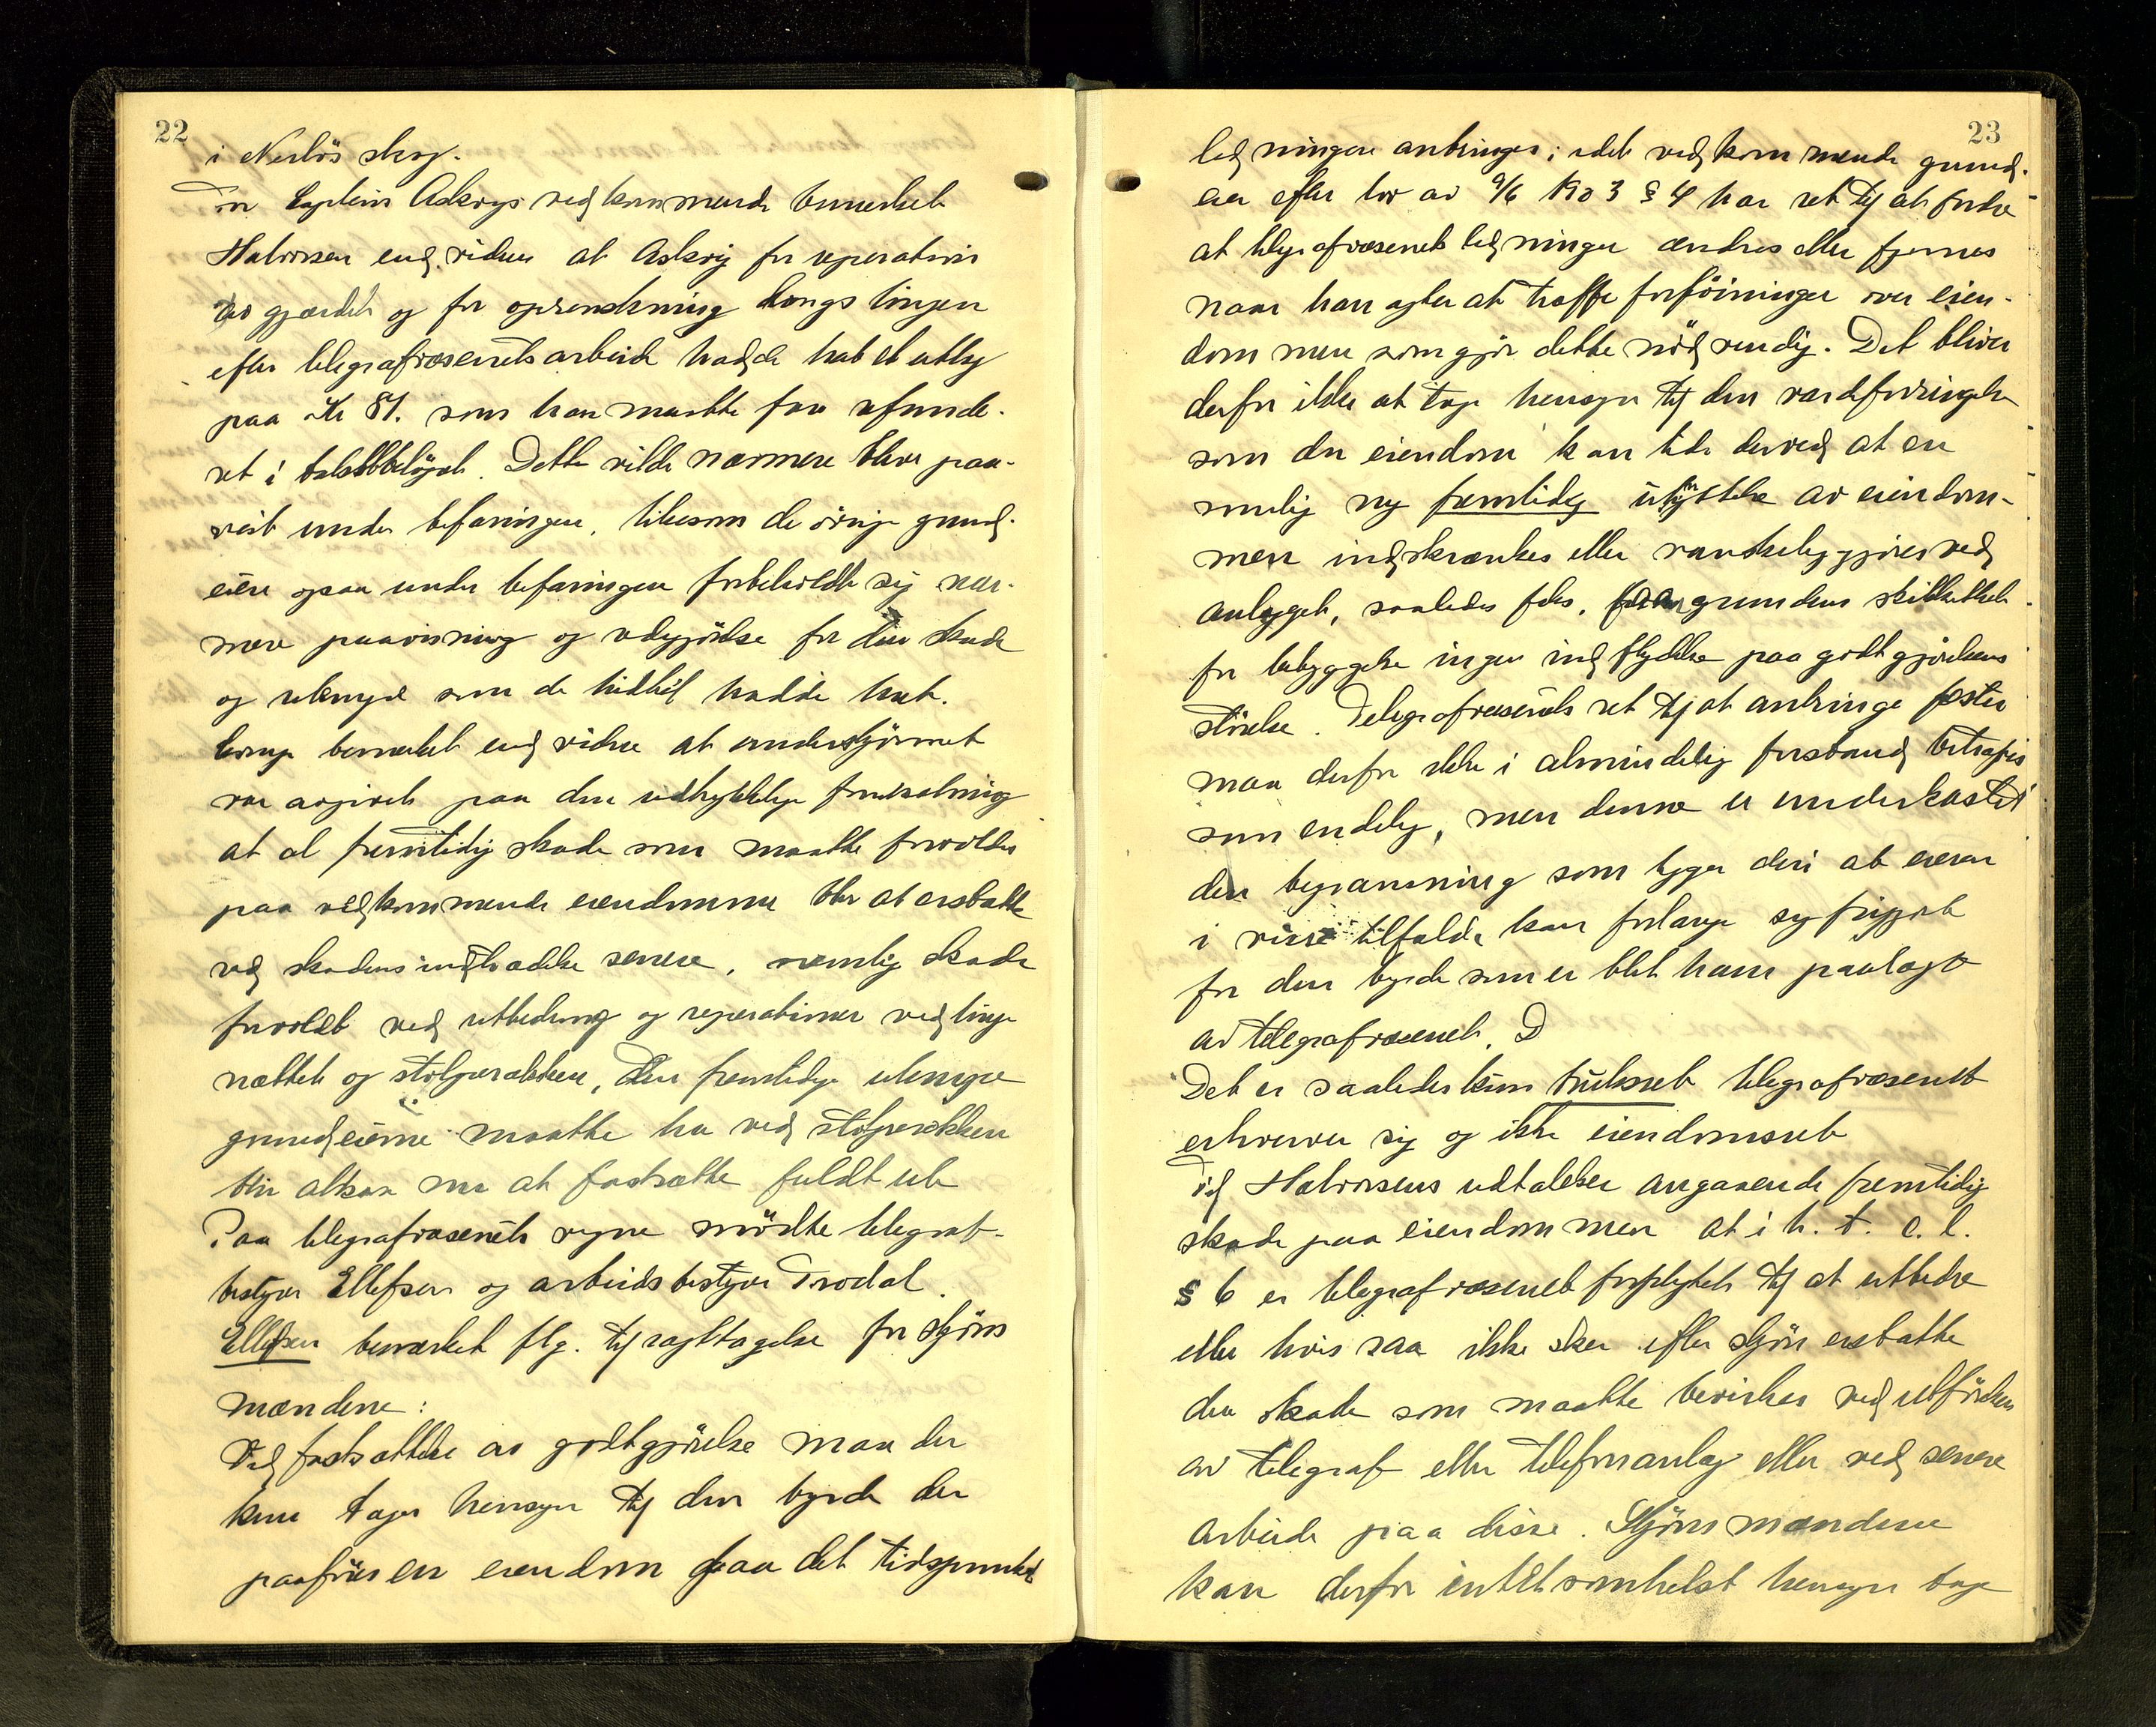 22
i Nerlös skog.
For Captein Askvigs vedkommende bemerket
Halvorsen endvidere at Askvig for reperation
av gjærdet og for oprenskning langs linjen
efter telegrafvæsenets arbeide hadde hat et utlæg
paa Kr 81. som han maatte faa refunde-
ret i beløpet. Dette vilde nærmere blive paa-
vist under befaringen, likesom de övrige grund-
eiere ogsaa under befaringen forbeholdt sig nær-
mere paavisning og redegjörelse for den skade
og ulempe som de hidtil hadde hat.
bemerket endvidere at underskjönnet
var avgivet paa den udtrykkelige forutsætning
at al fremtidig skade som maatte forvoldes
paa vedkommende eiendomme blir at erstatte
ved skadens indtrædelse senere, nemlig skade
forvoldt ved utbedring og reperationer ved linje
nættet og stolperækken, Den fremtidige ulempe
grundeierne maatte ha ved stolperækken
blir altsaa nu at fastsætte fuldt ut
Paa telegrafvæsenets vegne mödte telegraf-
bestyrer Ellefsen og arbeidsbestyrer Trodal.
Ellefsen bemærket flg. til iagttagelse for skjöns
mændene:
Ved fastsættelse av godtgjörelse maa der
kun tages hensyn til den byrde der
paaföres en eiendom paa det tidspunkt
23
ledningene anbringes; idet vedkommende grund-
eier efter lov av 9/6 1903 § 4 har ret til at fordre
at telegrafvæsenets ledninger ændres eller fjernes
naar han agter at træffe forföininger over eien-
dommen som gjör dette nödvendig. Det bliver
derfor ikke at tage hensyn til den værdiforringelse
som den eiendom kan lide derved at en
mulig ny fremtidig utnyttelse av eiendom-
men indskrænkes eller vanskeliggjöres ved
anlægget, saaledes f.eks. faar grundens skikkethet
for bebyggelse ingen indflydelse paa godtgjörelsens
störrelse. Telegrafvæsenets ret til at anbringe fæster
maa derfor ikke i almindelig forstand betragtes
som endelig, men denne er underkastet
den begrænsning som ligger deri at eieren
i visse tilfælde kan forlange sig frigjort
for den byrde som er blet ham paalagt
av telegrafvæsenet. D
Det er saaledes kun bruksret telegrafvæsenet
erhverver sig og ikke eiendomsret
Til Halvorsens udtalelser angaaende fremtidig
skade paa eiendommen at i h. t. c. l.
§ 6 er telegrafvæsenet forpligtet til at utbedre
eller hvis saa ikke sker efter skjön erstatte
den skade som maatte bevirkes ved utförelsen
av telegraf eller telefonanlæg eller ved senere
arbeide paa disse. Skjönsmændene
kan derfor intetsomhelst hensyn tage